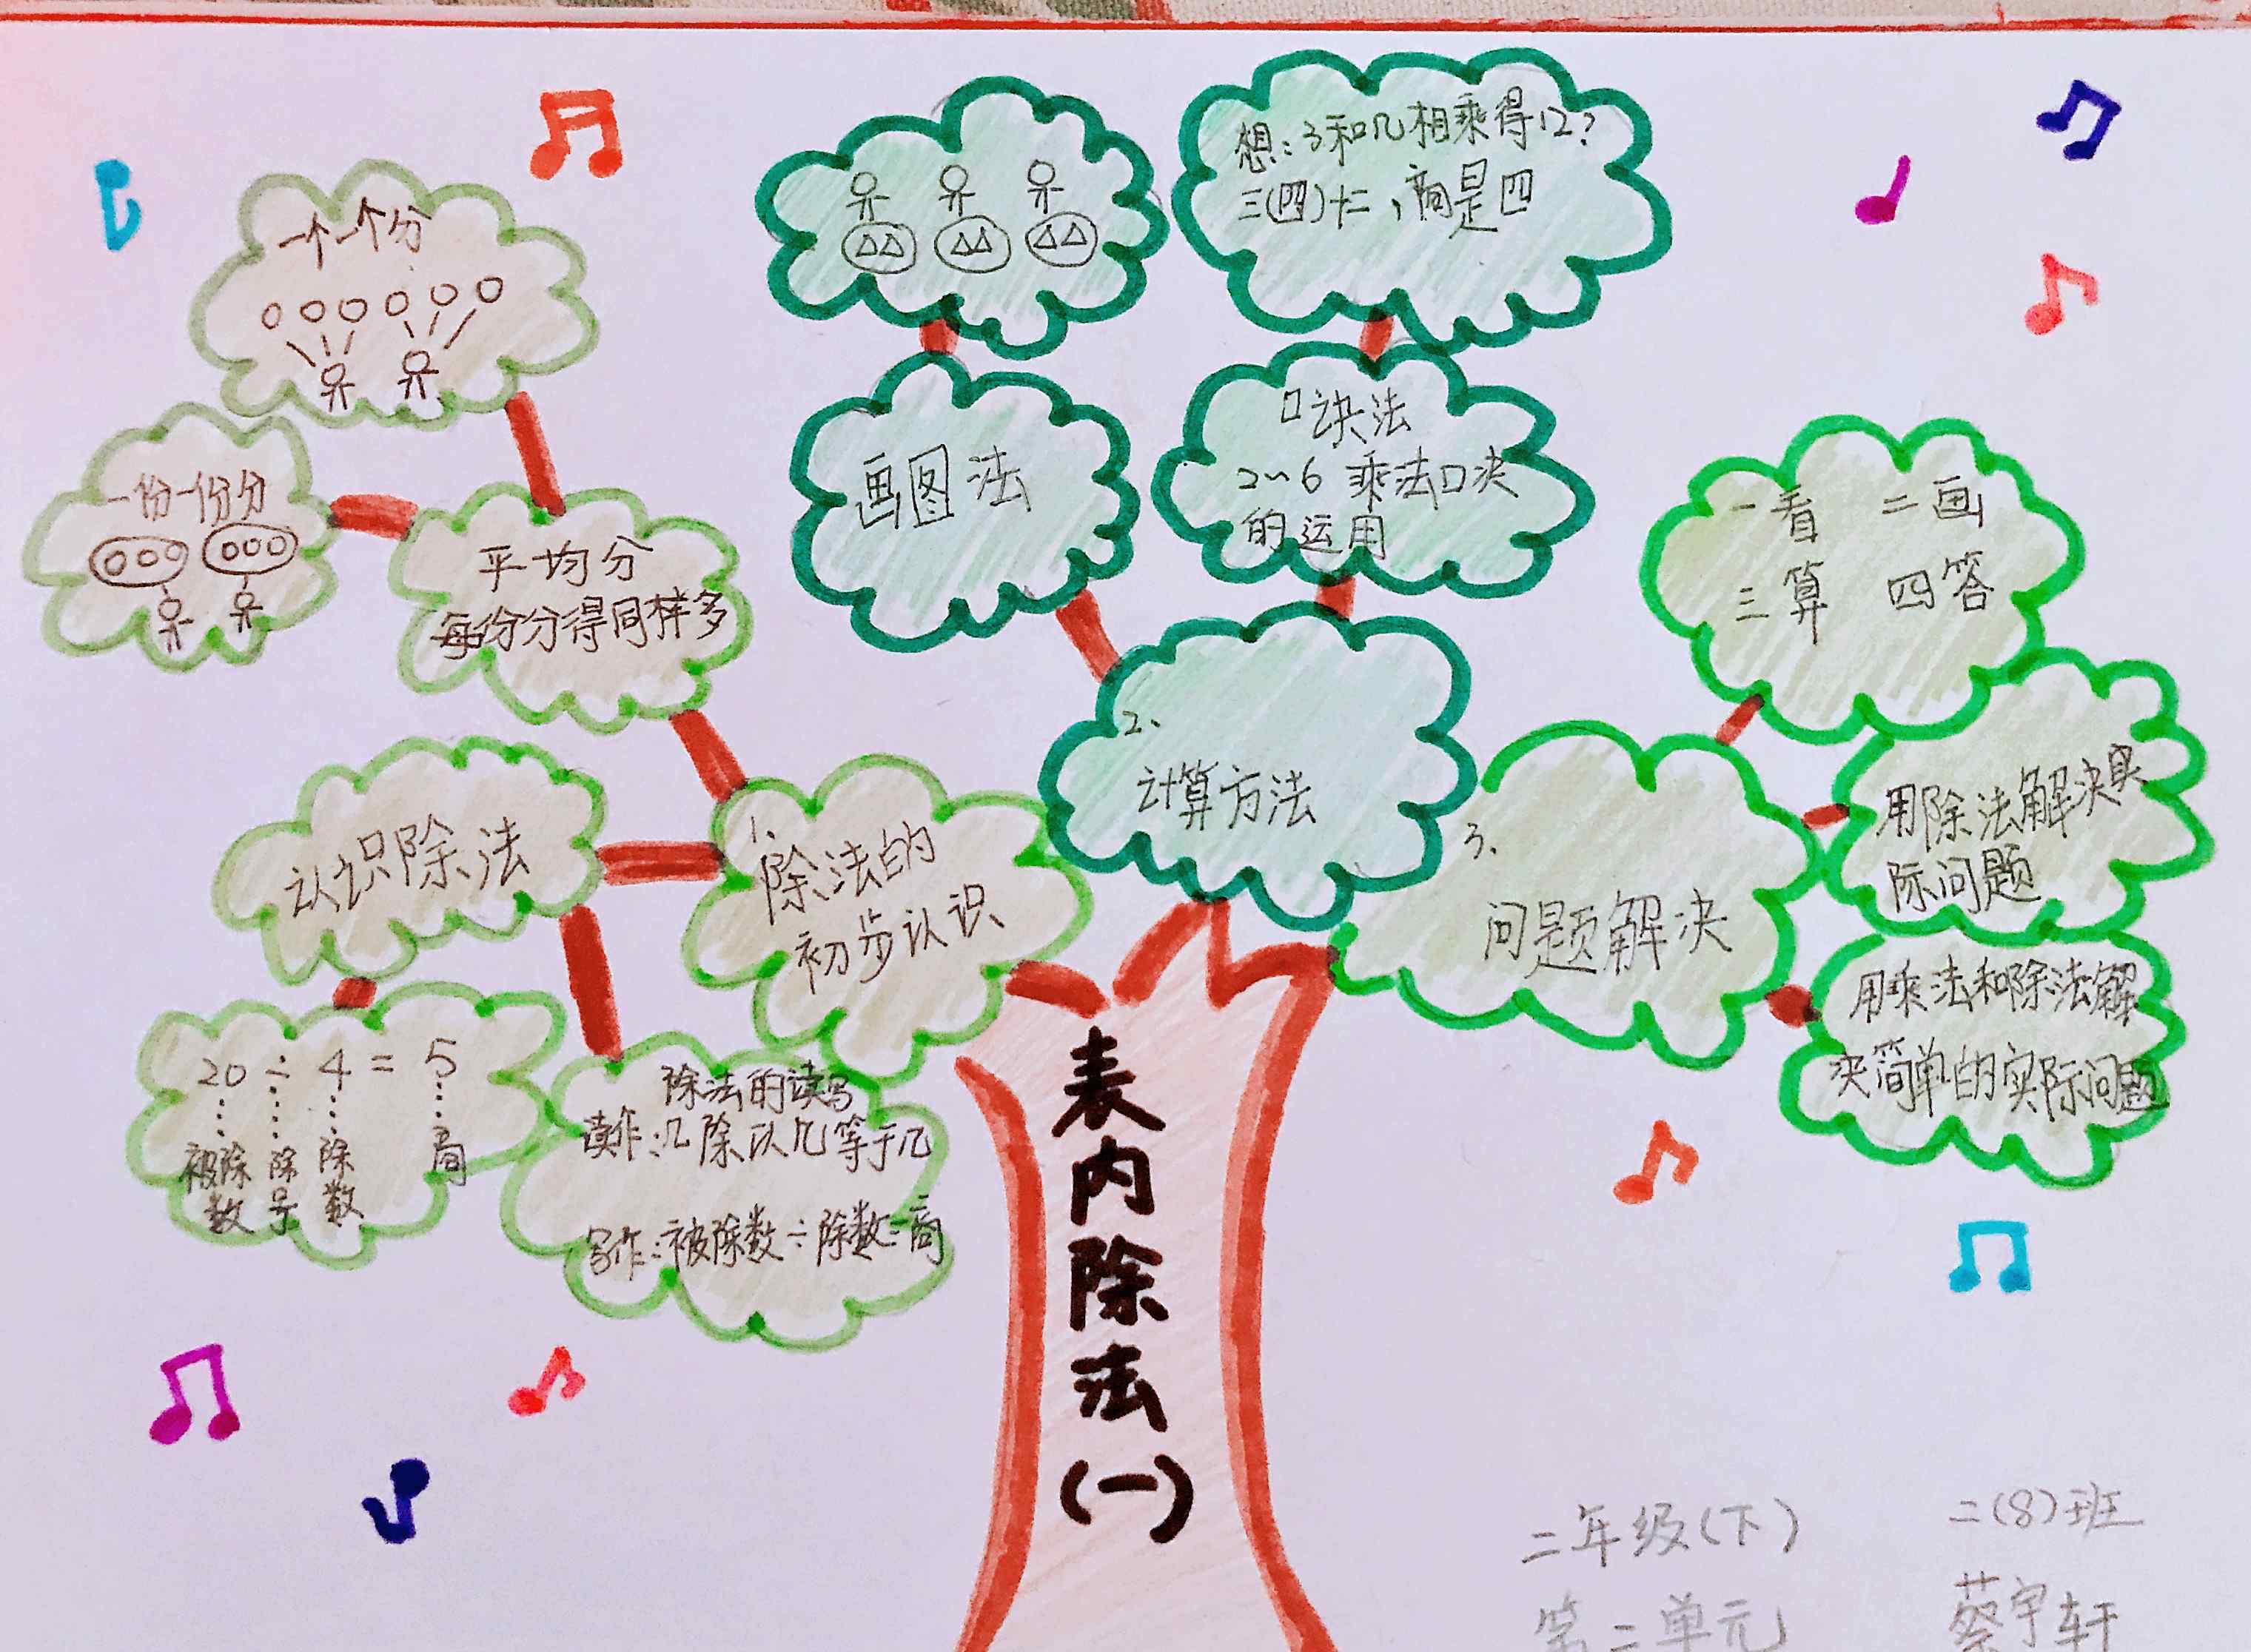 一个一个分
一份一份分
平均分
每份分得同样多
认识除法
20 ÷ 4 = 5
被除数 除号 除数 商
除法的读写
读作:几除以几等于几
写作:被除数÷除数=商
1、
除法的
初步认识
画图法
想:3和几相乘得12?
三(四)十二,商是四
口诀法
2~6 乘法口决
的运用
2、
计算方法
3、
问题解决
一看 二画
三算 四答
用除法解决实
际问题
用乘法和除法解
决简单的实际问题
表内除法(一)
二年级(下)
第二单元
二(8)班
蔡宇轩